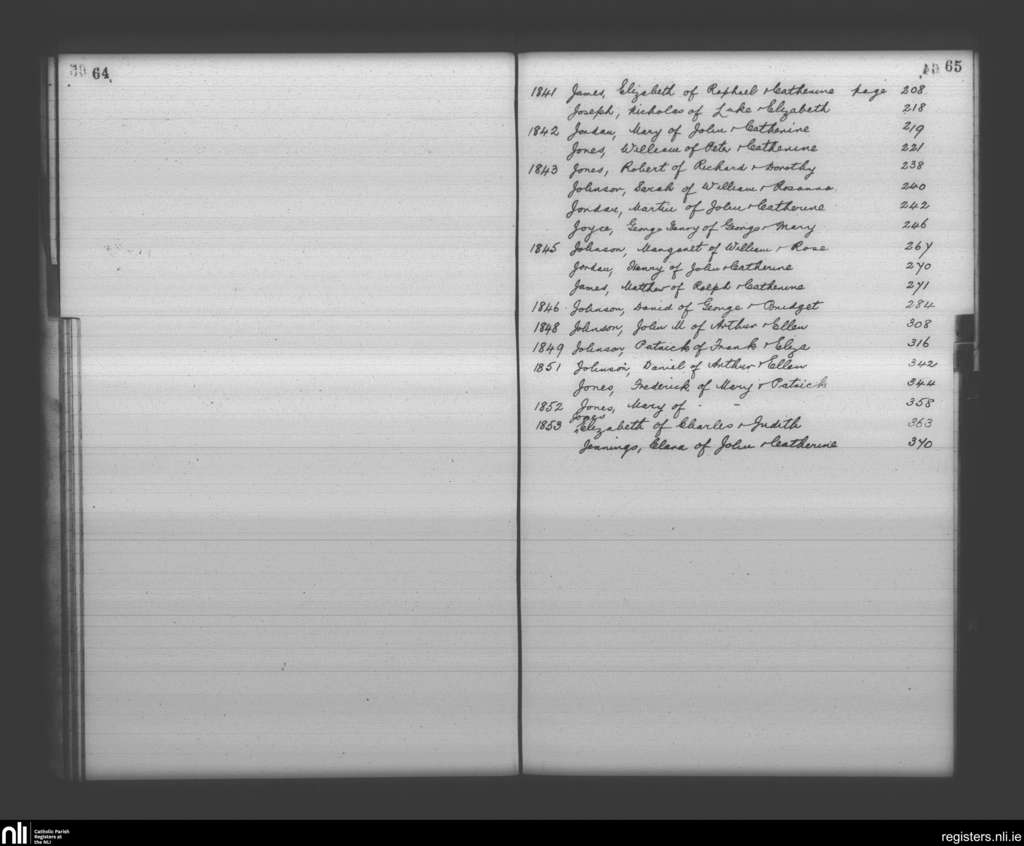 64
65
1841 James, Elizabeth of Raphael & Catherine page 208
Joseph, Nicholas of Luke & Elizabeth 218
1842 Jordan, Mary of John & Catherine 219
Jones, William of Peter & Catherine 221
1843 Jones, Robert of Richard & Dorothy 238
Johnson, Sarah of William & Rosanna 240
Jordan, Martin of John & Catherine 242
Joyce, George Henry of George & Mary 246
1845 Johnson, Margaret of William & Rose 267
Jordan, Henry of John & Catherine 270
James, Matthew of Ralph & Catherine 271
1846 Johnson, David of George & Bridget 284
1848 Johnson, John M of Arthur & Ellen 308
1849 Johnson, Patrick of Frank & Eliza 316
1851 Johnson, Daniel of Arthur & Ellen 342
Jones, Frederick of Mary & Patrick 344
1852 Jones, Mary of - - 358
Jones
1853 Elizabeth of Charles & Judith 363
Jennings, Clara of John & Catherine 370
nli
Catholic Parish
Registers at
the NLI
registers.nli.ie